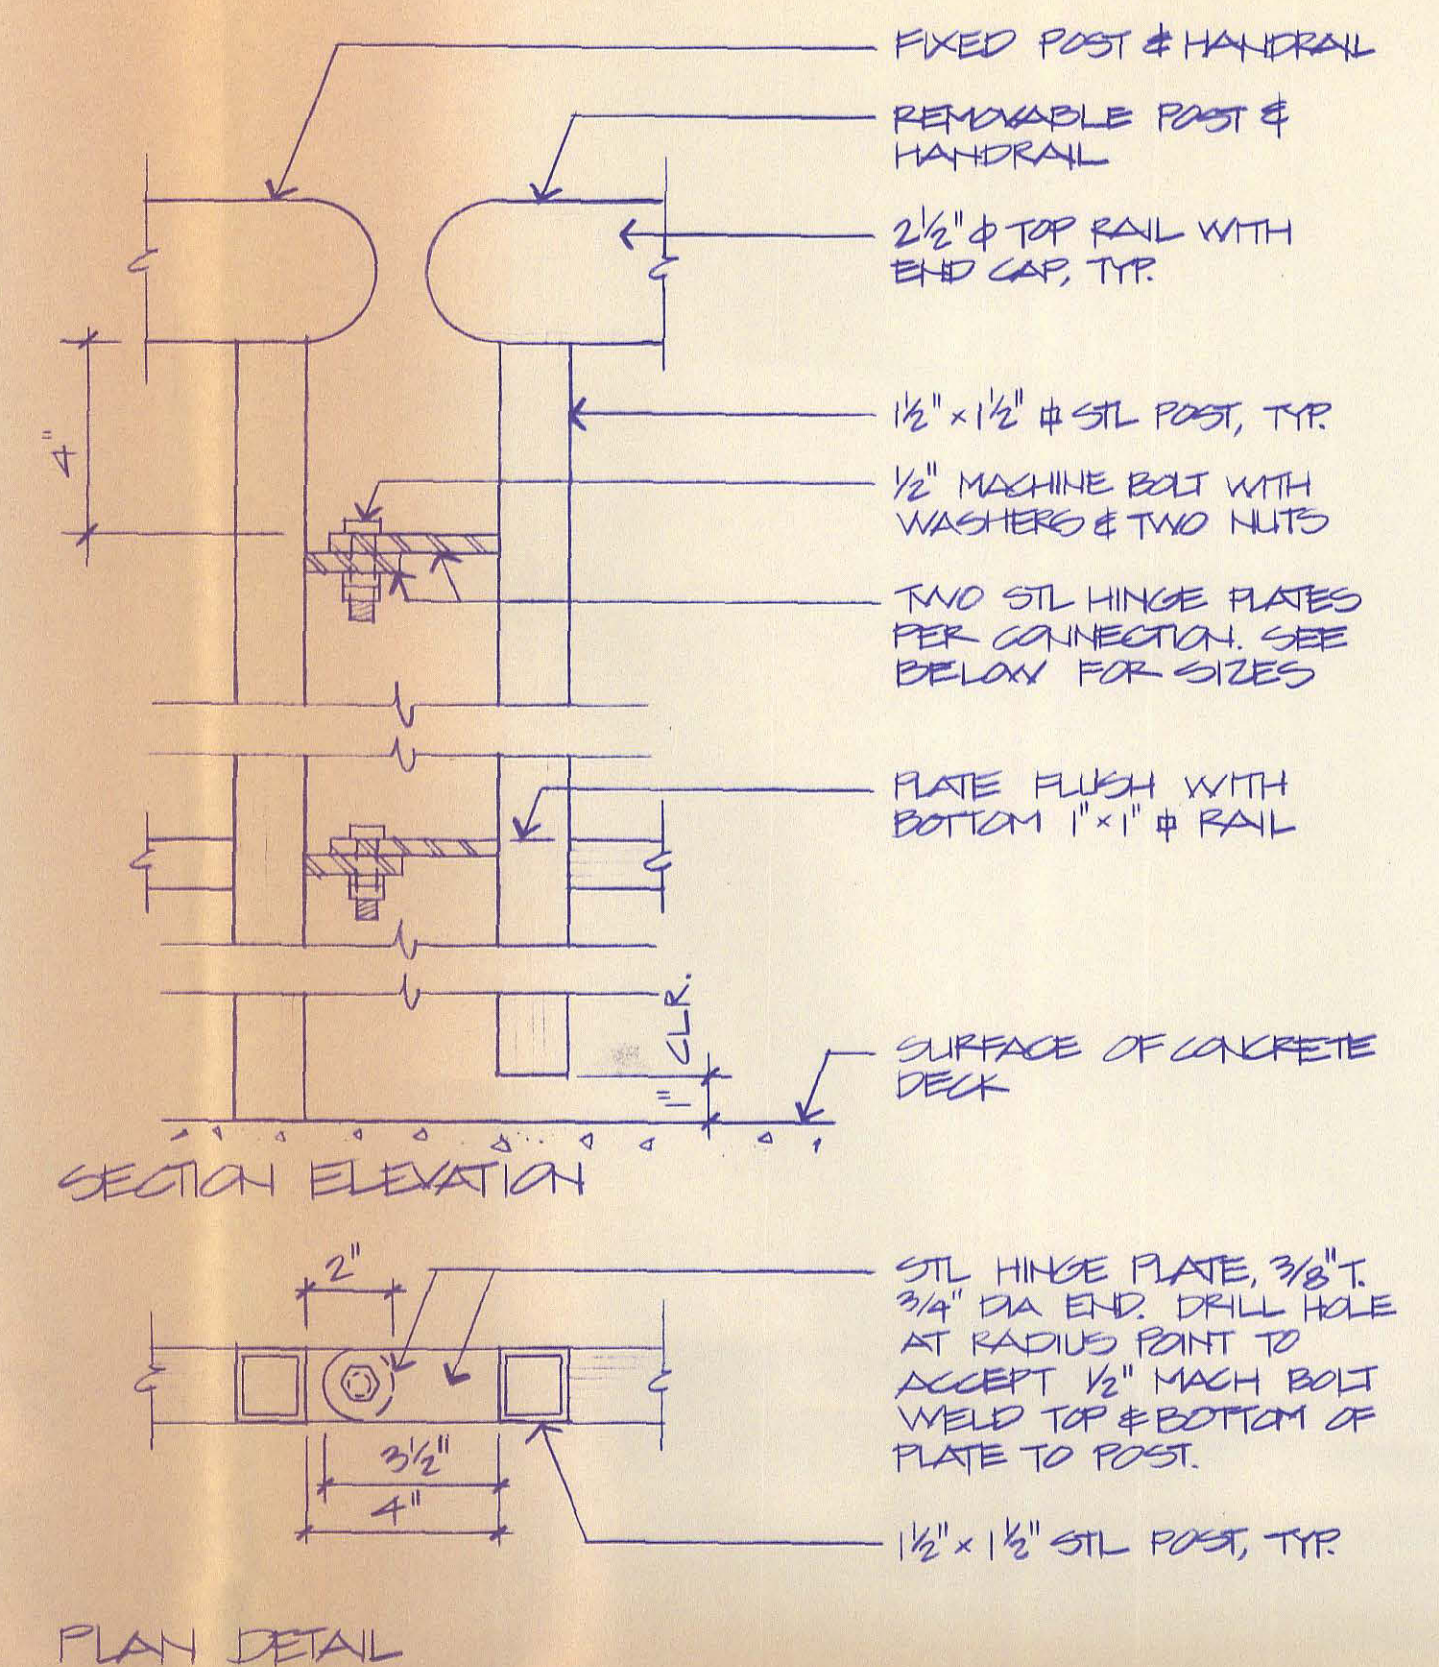 FIXED POST & HANDRAIL
REMOVABLE POST &
HANDRAIL
2½"ϕ TOP RAIL WITH
END CAP, TYP.
4"
1½" x 1½" ⌗ STL POST, TYP.
½" MACHINE BOLT WITH
WASHERS & TWO NUTS
TWO STL HINGE PLATES
PER CONNECTION. SEE
BELOW FOR SIZES
PLATE FLUSH WITH
BOTTOM 1" x 1" ⌗ RAIL
1" CLR.
SURFACE OF CONCRETE
DECK
SECTION ELEVATION
2"
STL HINGE PLATE, 3/8" T.
3/4" DIA END. DRILL HOLE
AT RADIUS POINT TO
ACCEPT ½" MACH BOLT
WELD TOP & BOTTOM OF
PLATE TO POST.
3½"
4"
1½" x 1½" STL POST, TYP.
PLAN DETAIL